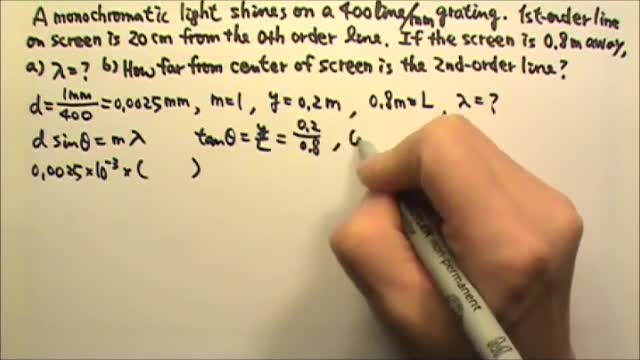 A monochromatic light shines on a 400 line/mm grating. 1st-order line
on screen is 20 cm from the 0th order line. If the screen is 0.8 m away,
a) λ=? b) How far from center of screen is the 2nd-order line?
d = 1mm/400 = 0.0025 mm, m=1, y=0.2 m, 0.8m=L, λ=?
d sinθ = mλ tanθ = y/L = 0.2/0.8 ,
0.0025×10⁻³×( )
non-permanent